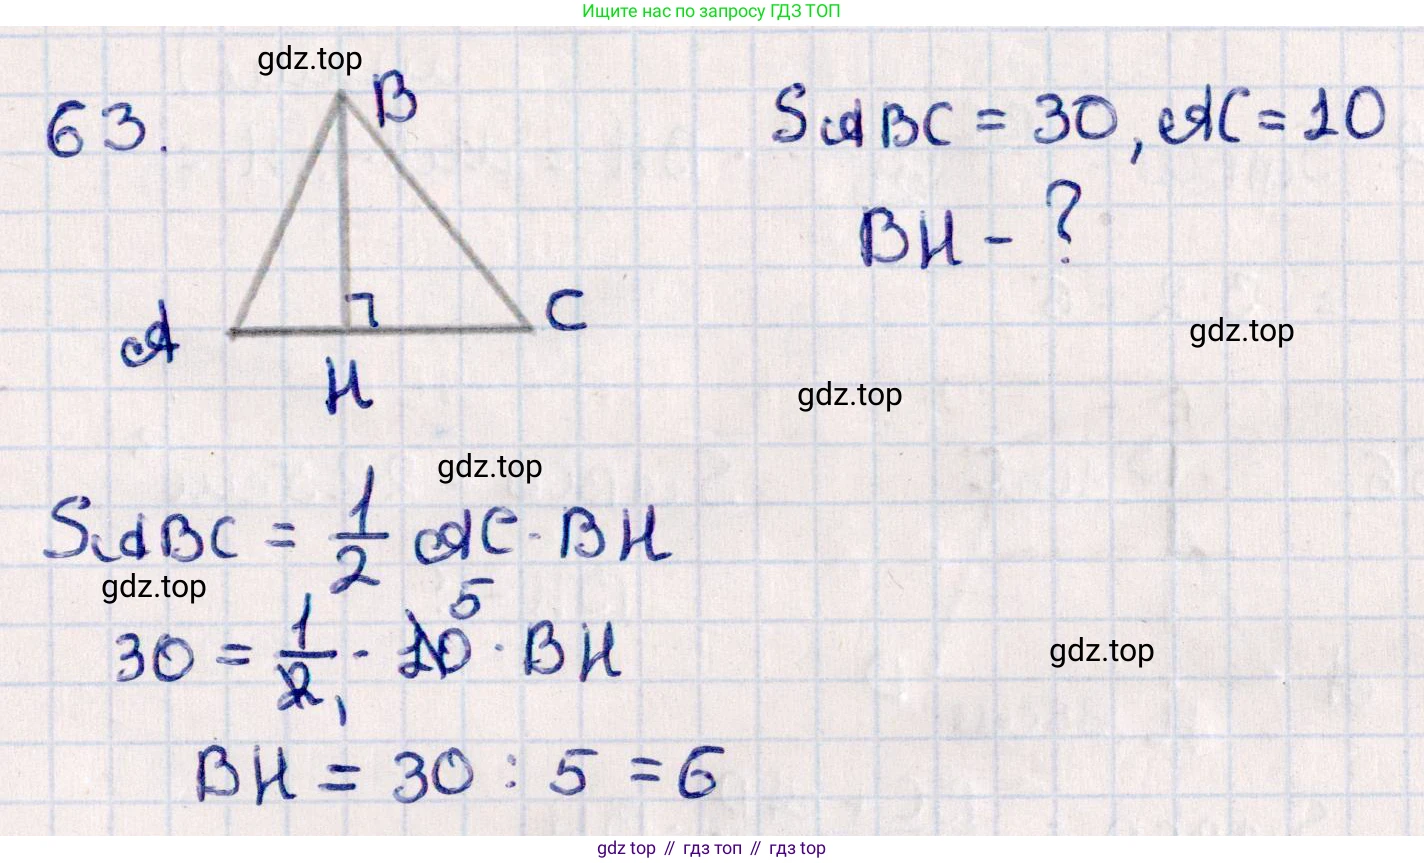 Ищите нас по запросу ГДЗ ТОП
gdz.top
63.
B
S ABC = 30, AC = 10
BH - ?
A
C
H
gdz.top
gdz.top
gdz.top
S ABC = 1/2 AC · BH
gdz.top
5
30 = 1/2 · 10 · BH
1
gdz.top
BH = 30 : 5 = 6
gdz top // гдз топ // гдз top